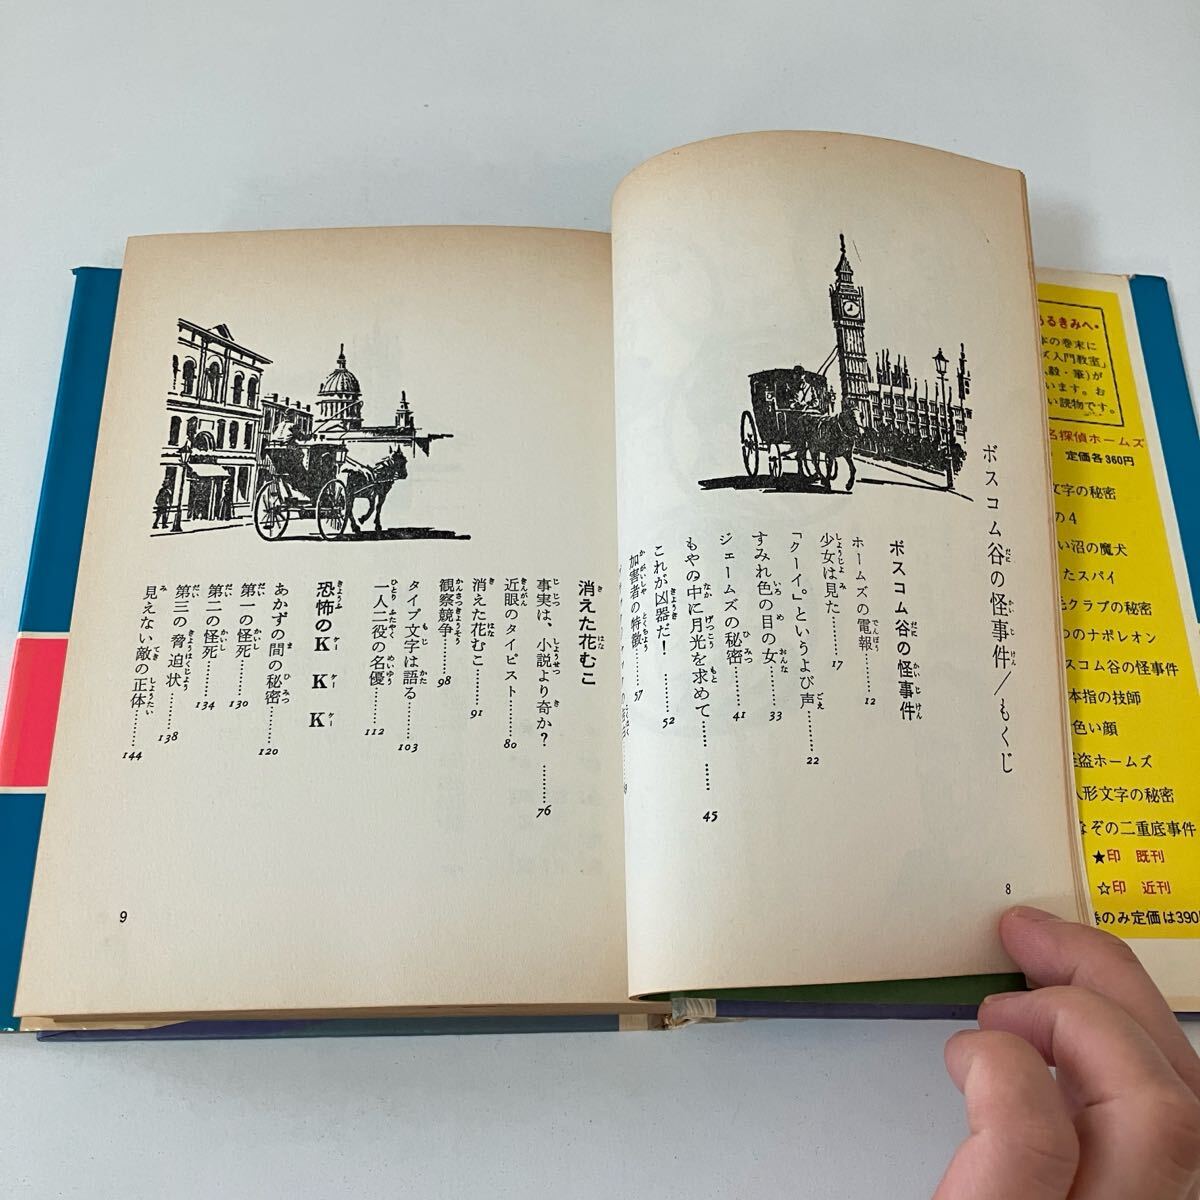 ボスコム谷の怪事件／もくじ
ボスコム谷の怪事件
ホームズの電報………12
少女は見た………17
「クーイ。」というよび声……22
すみれ色の目の女………33
ジェームズの秘密………41
もやの中に月光を求めて………45
これが凶器だ！………52
加害者の特徴………57
8
消えた花むこ
事実は、小説より奇か？………76
近眼のタイピスト………80
消えた花むこ………91
観察競争………98
タイプ文字は語る………103
一人二役の名優………112
恐怖のKKK
あかずの間の秘密………120
第一の怪死………130
第二の怪死………134
第三の脅迫状………138
見えない敵の正体………144
9
るきみへ・
本の巻末に
ズ入門教室」
毅・筆)が
います。お
い読物です。
名探偵ホームズ
定価各360円
文字の秘密
の4
い沼の魔犬
たスパイ
クラブの秘密
つのナポレオン
スコム谷の怪事件
本指の技師
色い顔
怪盗ホームズ
人形文字の秘密
なぞの二重底事件
★印 既刊
☆印 近刊
巻のみ定価は390